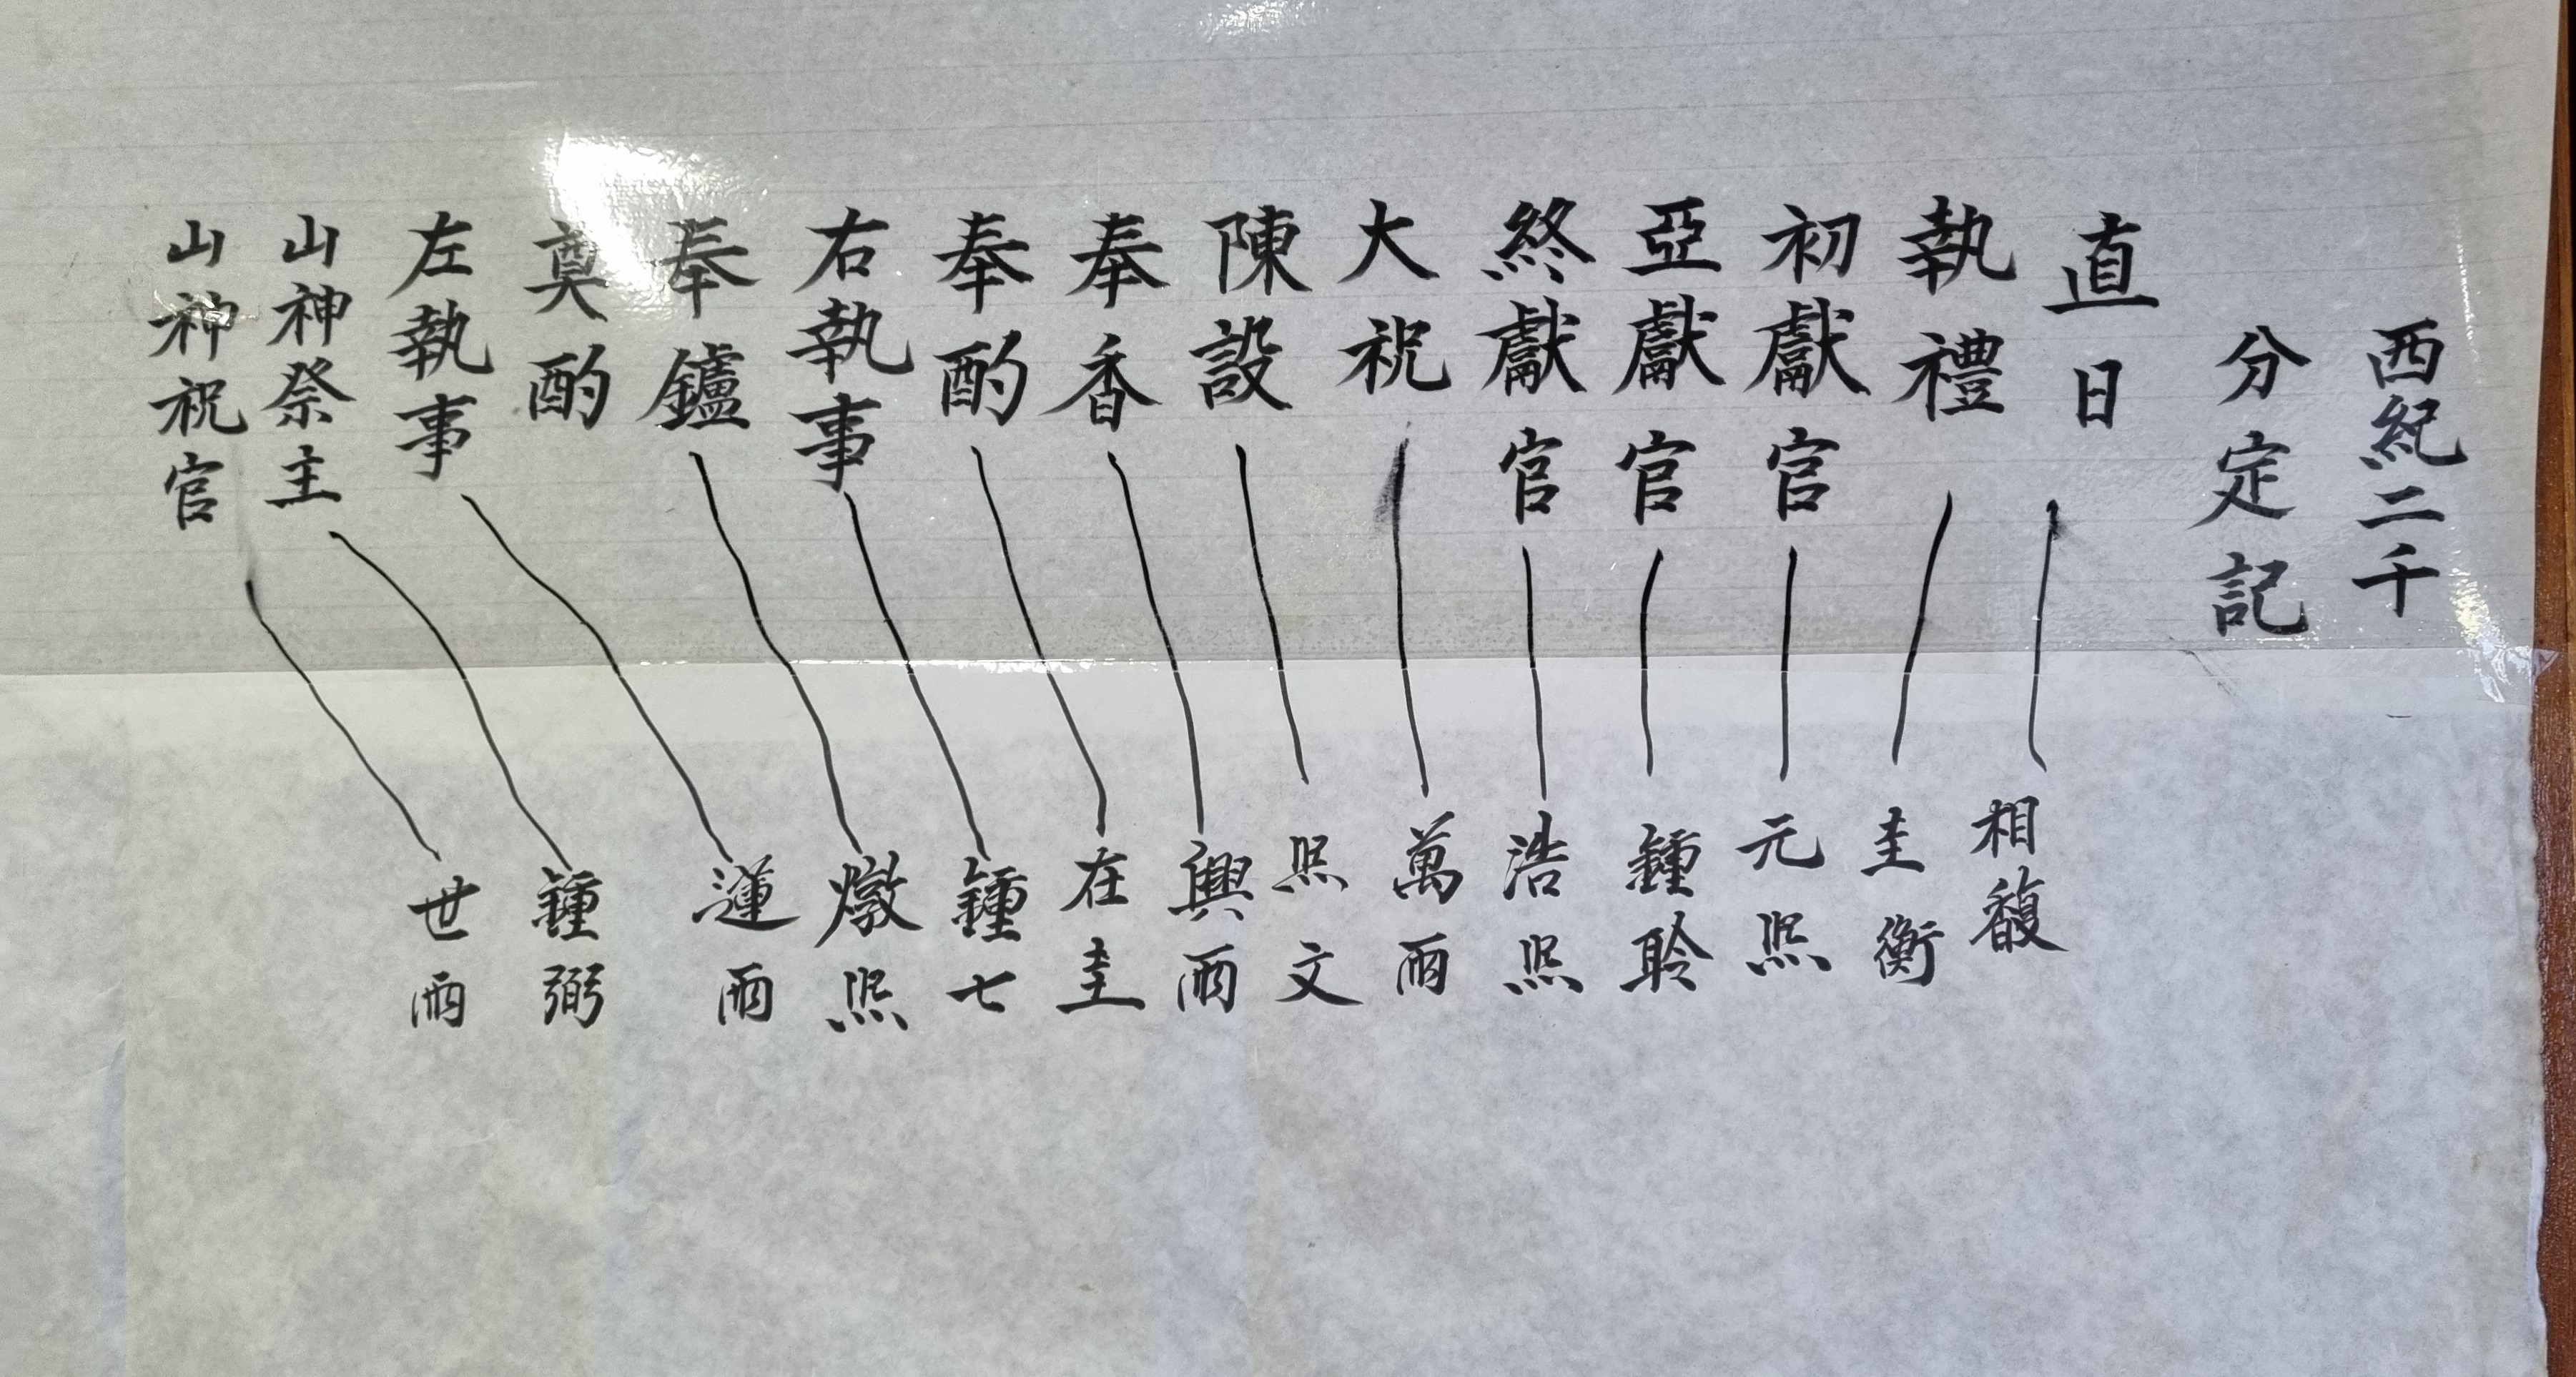 西紀二千
分定記
直日
執禮
初獻官
亞獻官
終獻官
大祝
陳設
奉香
奉酌
右執事
奉鑪
奠酌
左執事
山神祭主
山神祝官
相馥
圭衡
元熙
鍾聆
浩熙
萬雨
熙文
興雨
在圭
鍾七
燉熙
運雨
鍾弼
世雨